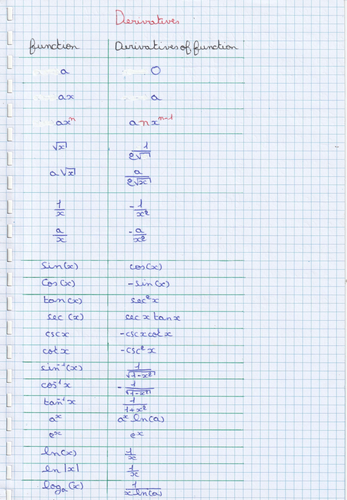 Derivatives
function Derivatives of function
a 0
ax a
axⁿ anxⁿ⁻¹
√x 1/2√
a√x a/2√x
1/x -1/x²
a/x -a/x²
Sin(x) cos(x)
Cos(x) -sin(x)
tan(x) sec²x
sec(x) sec x tan x
csc x -csc x cot x
cot x -csc² x
sin⁻¹(x) 1/√1-x²
cos⁻¹x -1/√1-x²
tan⁻¹x 1/1+x²
aˣ aˣ ln(a)
eˣ eˣ
ln(x) 1/x
ln|x| 1/x
logₐ(x) 1/x ln(a)